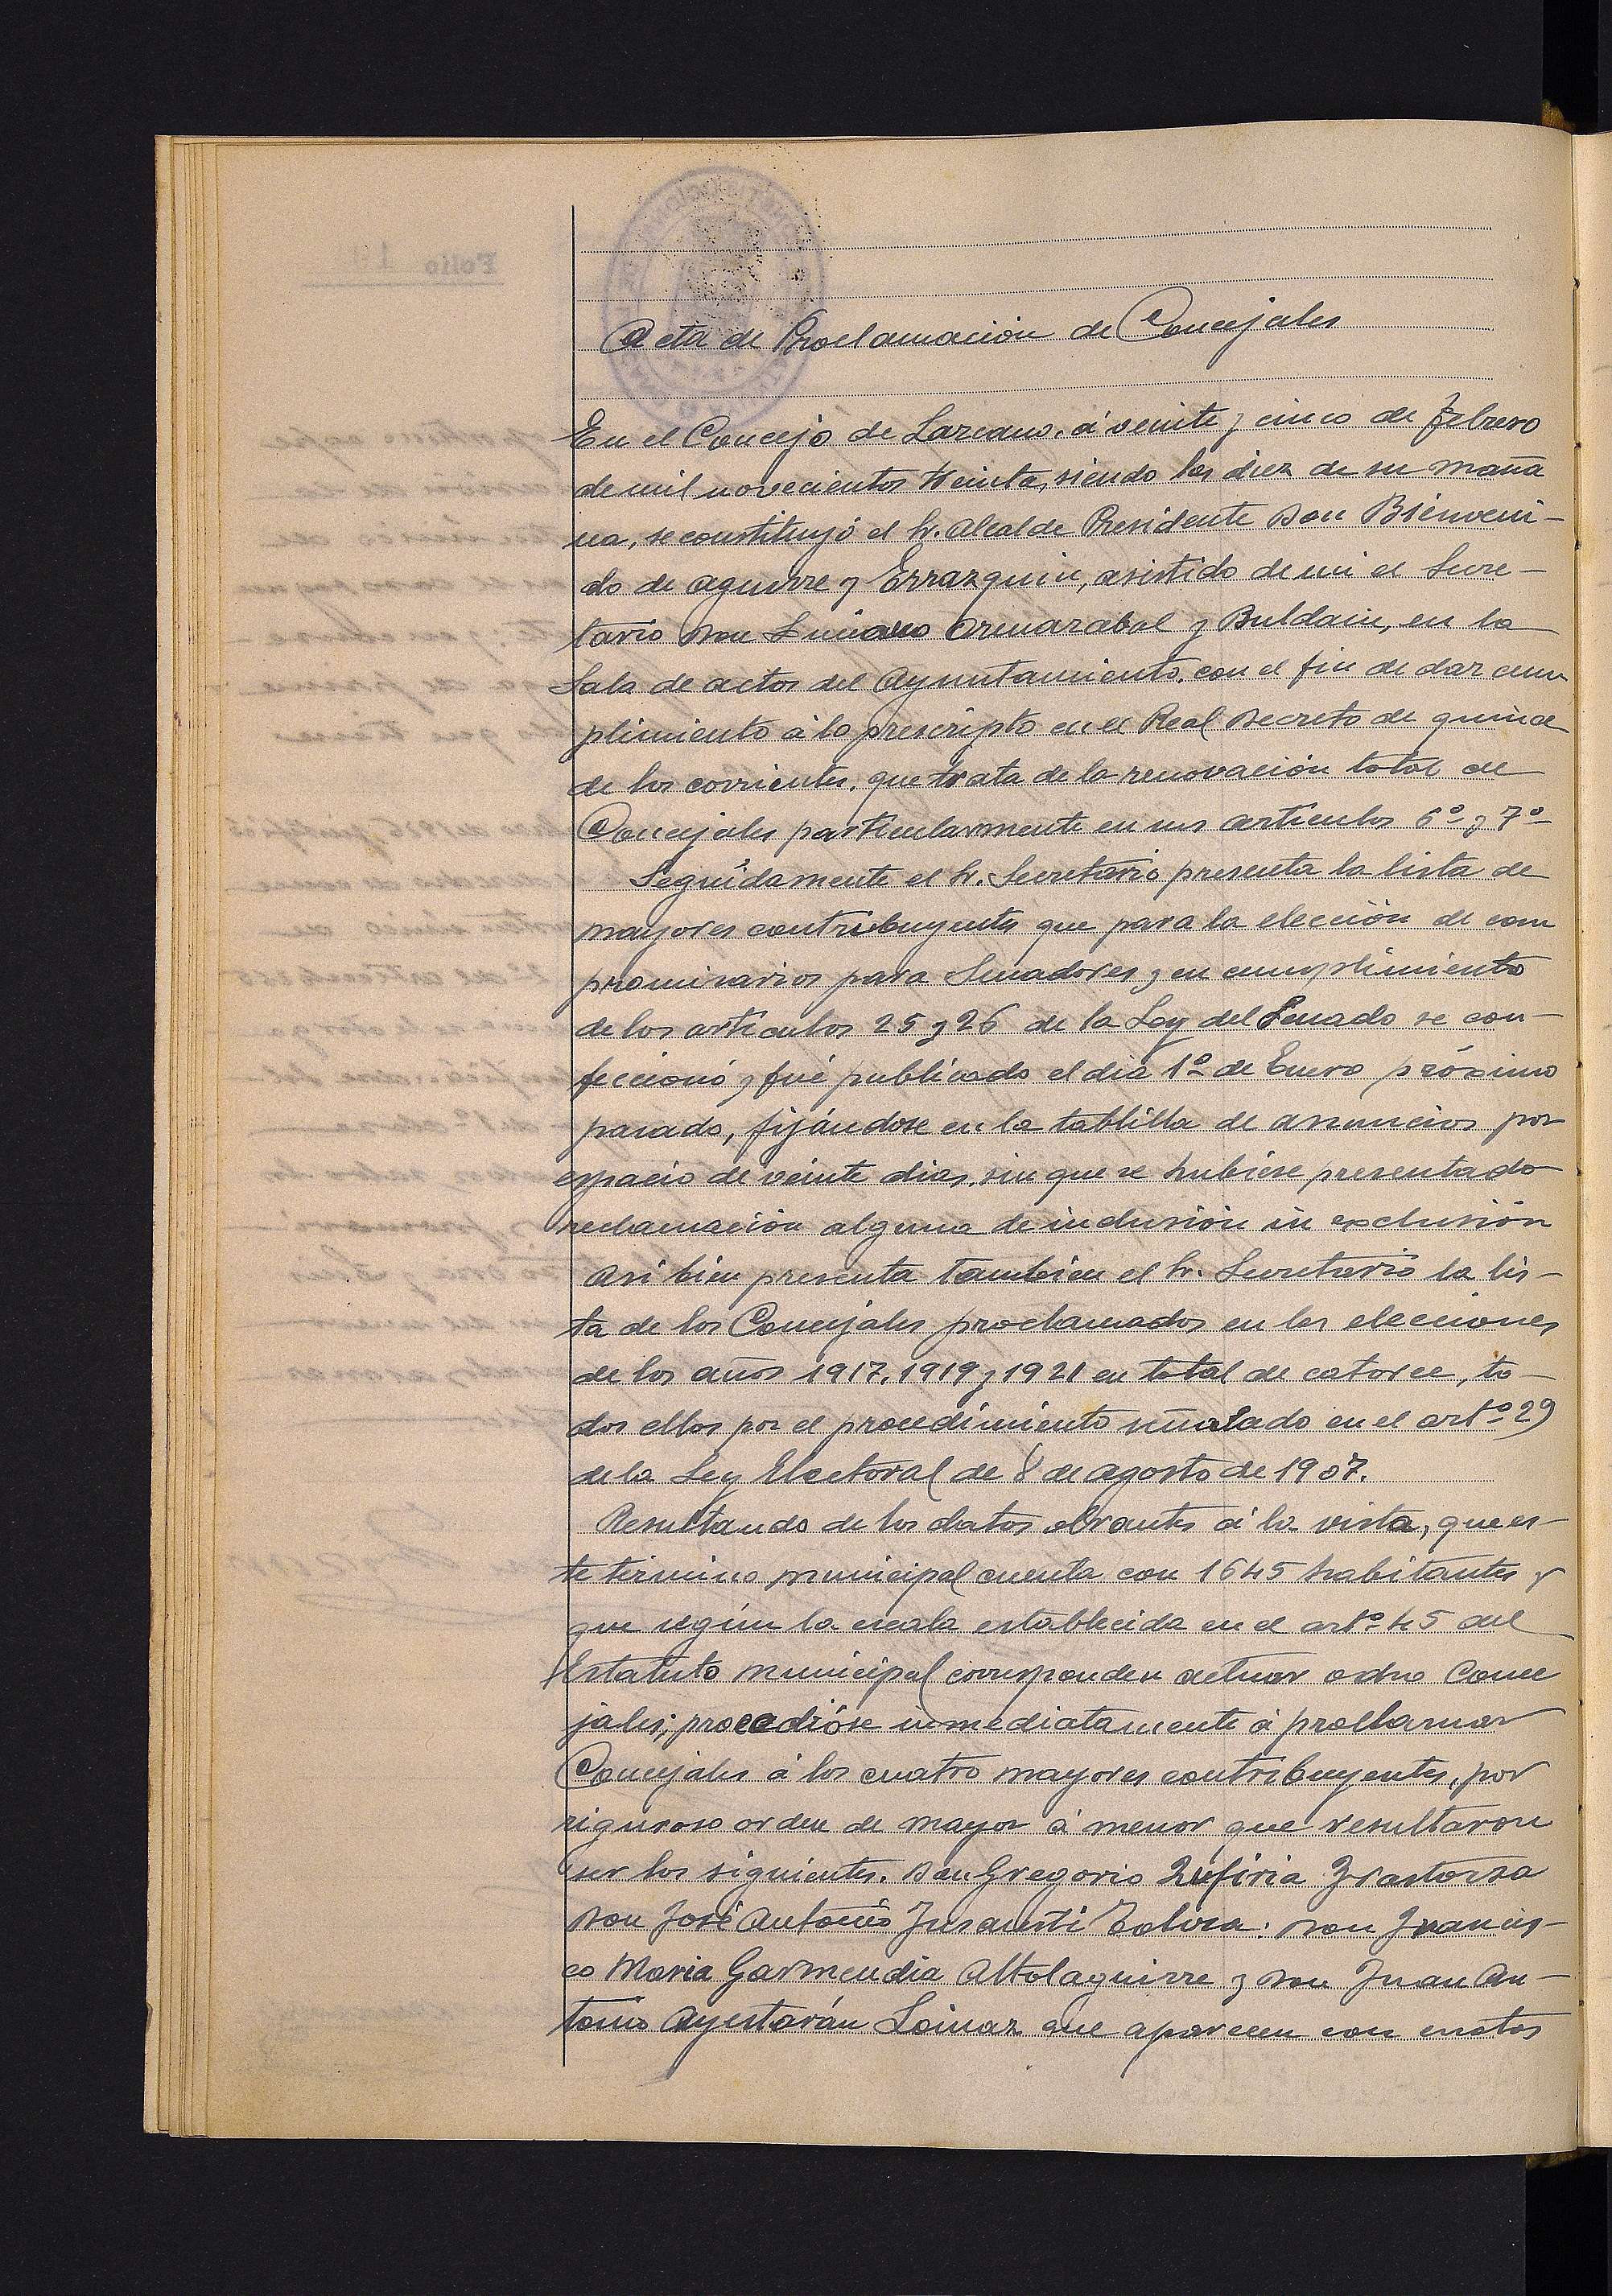 Acta de Proclamación de Concejales
En el Concejo de Lazcano, á veinte y cinco de febrero
de mil novecientos treinta, siendo las diez de su maña
na, se constituyó el Sr. Alcalde Presidente Don Bienveni-
do de Aguirre y Errazquin, asistido de mi el Secre-
tario Don Luciano Ormazabal y Buldain, en la
Sala de actos del Ayuntamiento, con el fin de dar cum
plimiento á lo prescripto en el Real Decreto de quince
de los corrientes, que trata de la renovación total de
Concejales particularmente en sus articulos 6º y 7º
Seguidamente el Sr. Secretario presenta la lista de
mayores contribuyentes que para la elección de com
promisarios para Senadores y en cumplimiento
de los articulos 25 y 26 de la Ley del Senado se con-
feccionó y fué publicado el dia 1º de Enero próximo
pasado, fijándose en la tablilla de anuncios por
espacio de veinte dias, sin que se hubiese presentado
reclamación alguna de inclusión in exclusión
Asi bien presenta tambien el Sr. Secretario la lis-
ta de los Concejales proclamados en las elecciones
de los años 1917, 1919 y 1921 en total de catorce, to-
dos ellos por el procedimiento señalado en el artº 29
de la Ley Electoral de 8 de agosto de 1907.
Resultando de los datos obrantes á la vista, que es-
te término municipal cuenta con 1645 habitantes y
que según la escala establecida en el artº 45 del
Estatuto municipal corresponden actuar ocho Conce
jales; procedióse inmediatamente á proclamar
Concejales á los cuatro mayores contribuyentes, por
riguroso orden de mayor á menor que resultaron
ser los siguientes. Don Gregorio Zufiria Irastorza
Don José Antonio Insausti : Don Francis-
co Maria Garmendia Altolaguirre y Don Juan An-
tonio Ayestarán Loinaz que aparecen con cuotas